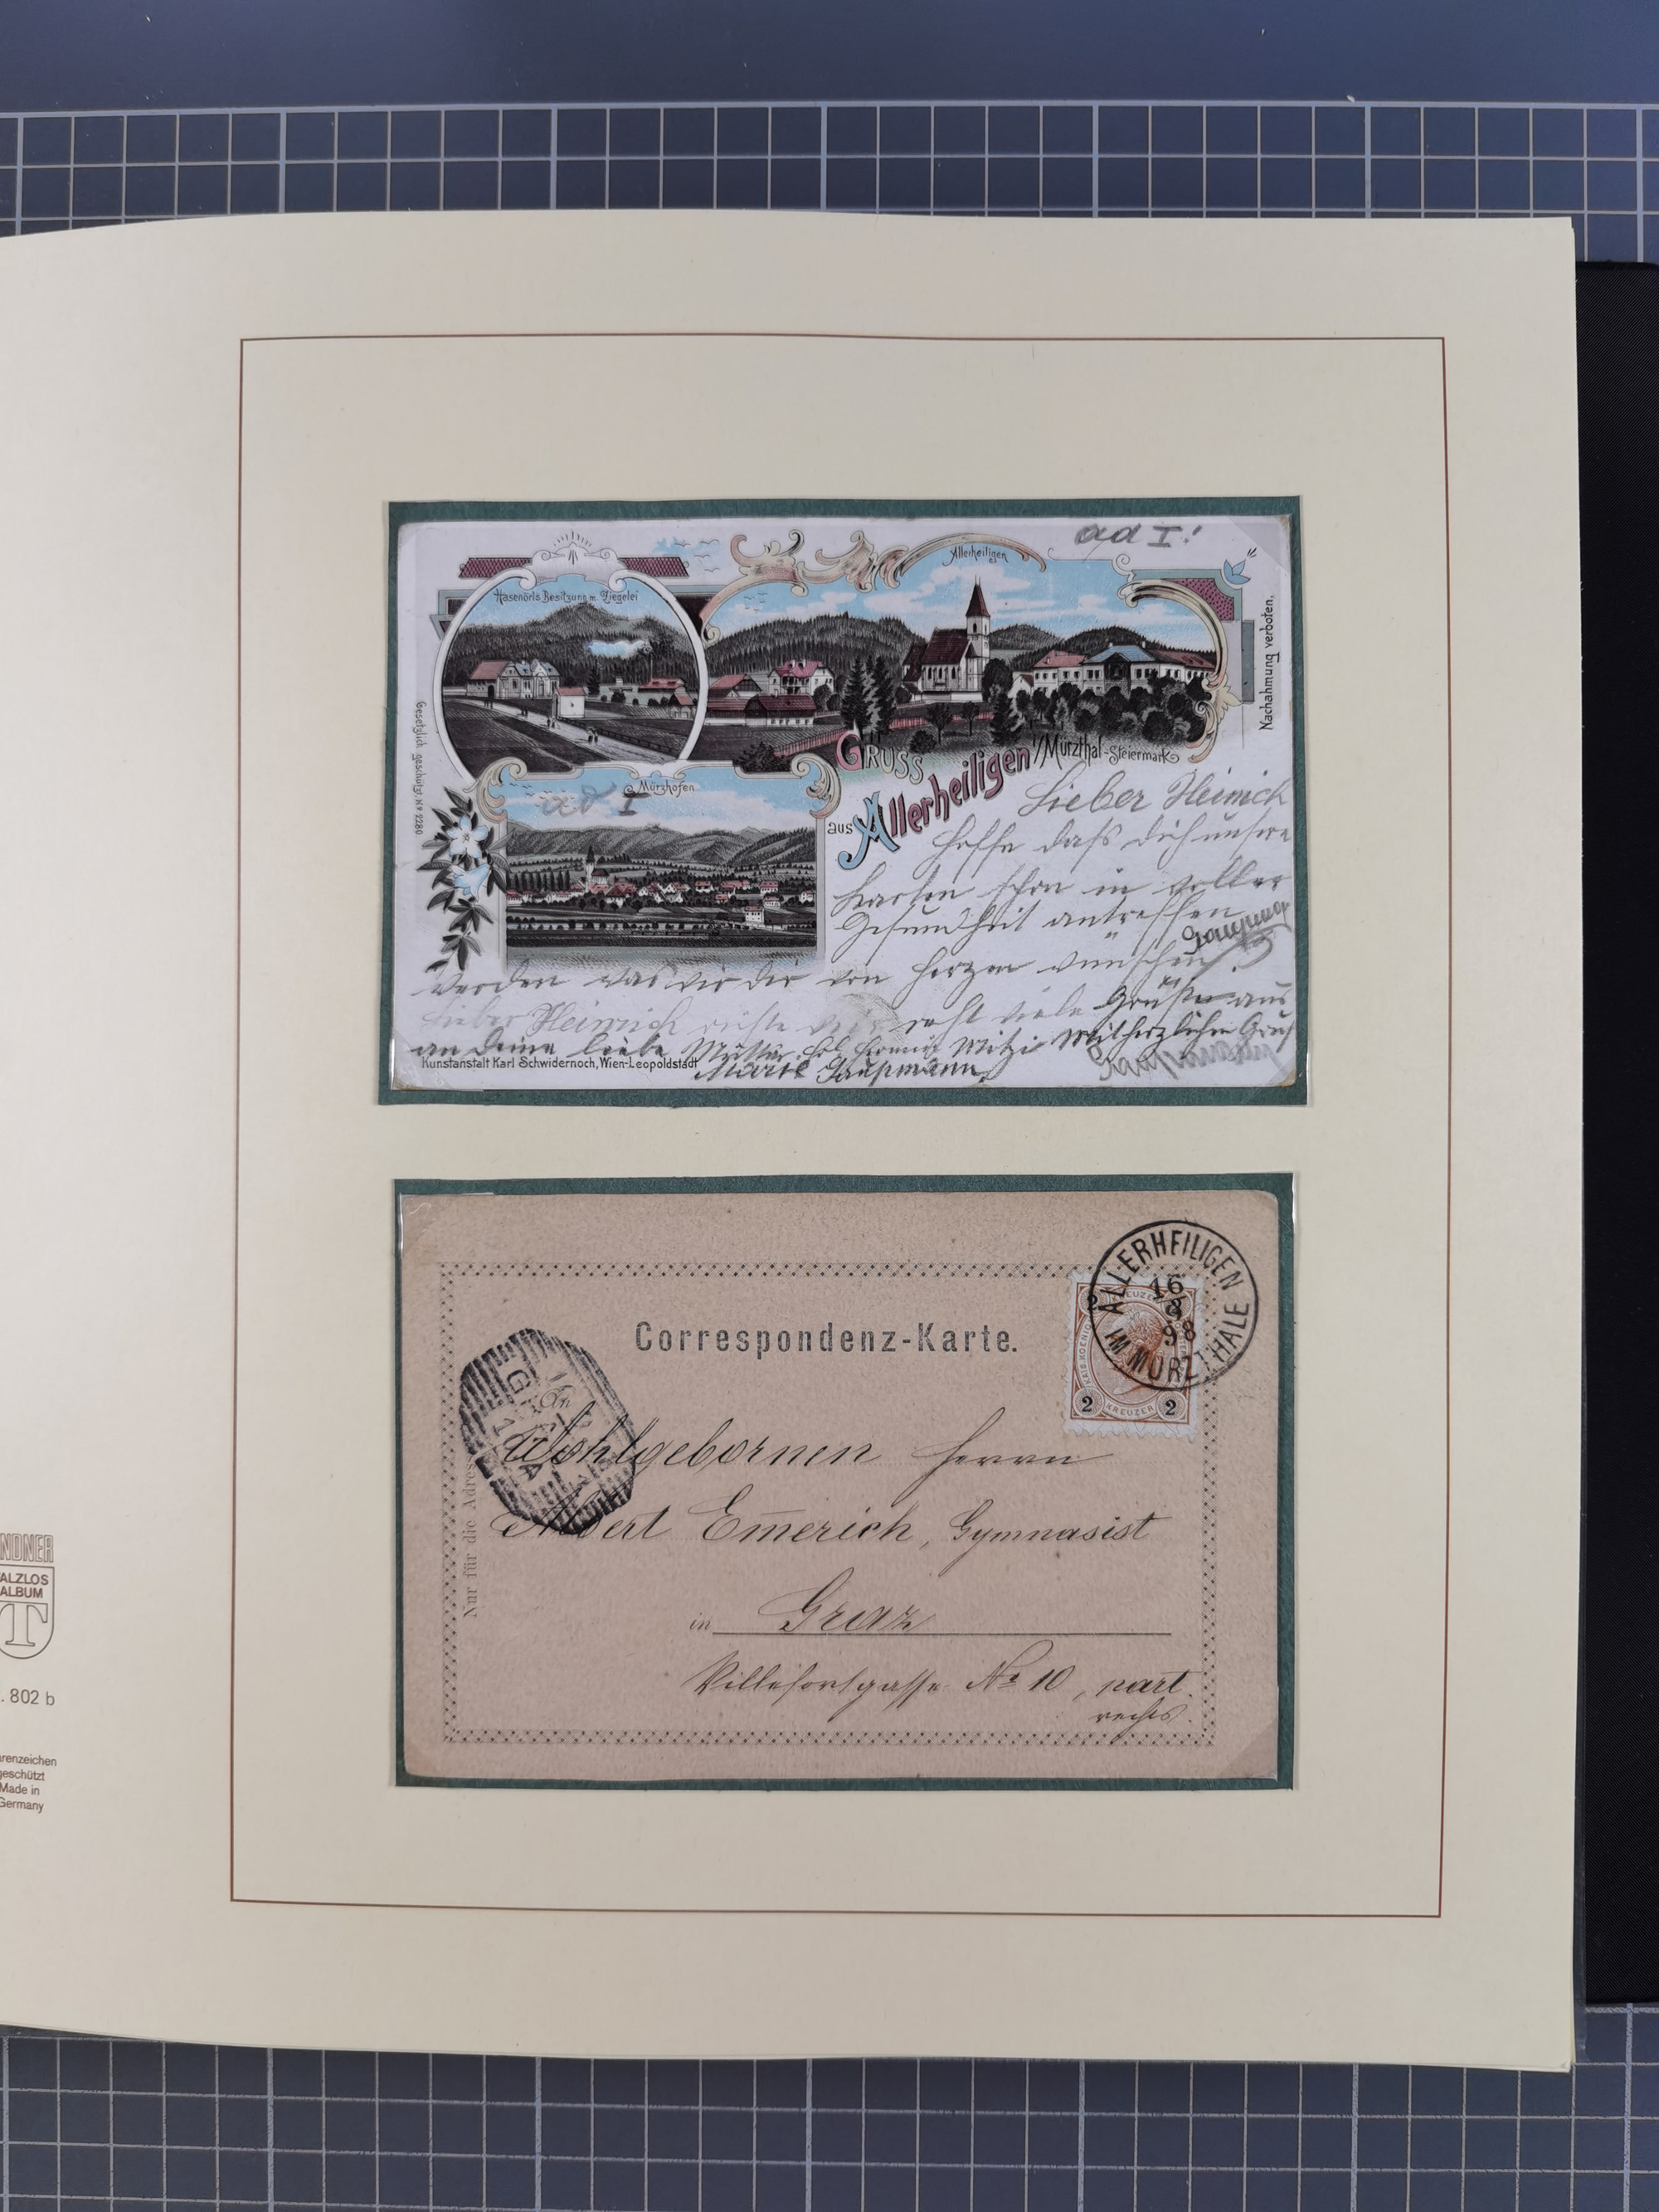 ad I!
Allerheiligen
Hasenörls Besitzung m. Ziegelei
Nachahmung verboten.
Gesetzlich geschützt. No 2280
Gruss
aus Allerheiligen i/Mürzthal-Steiermark
Mürzhofen
ad I
Lieber Heinrich
Hoffe daß dich unsere
Karten schon in voller
Gesundheit antreffen
werden was wir dir von Herzen wünschen.
Lieber Heinrich richte recht viele Grüße aus
an Deine liebe Mutter. Mitzi Mit herzlichen Gruß
Kunstanstalt Karl Schwidernoch, Wien-Leopoldstadt
Marie Gaupmann
ALLERHEILIGEN
16
8
98
IM MÜRZTHALE
KREUZER
2 KREUZER 2
Correspondenz-Karte.
An
Wohlgebornen Herrn
Albert Emerich, Gymnasist
in Graz
Villefortgasse No 10, part.
rechts.
Nur für die Adres
NDNER
ALZLOS
ALBUM
T
. 802 b
arenzeichen
geschützt
Made in
Germany